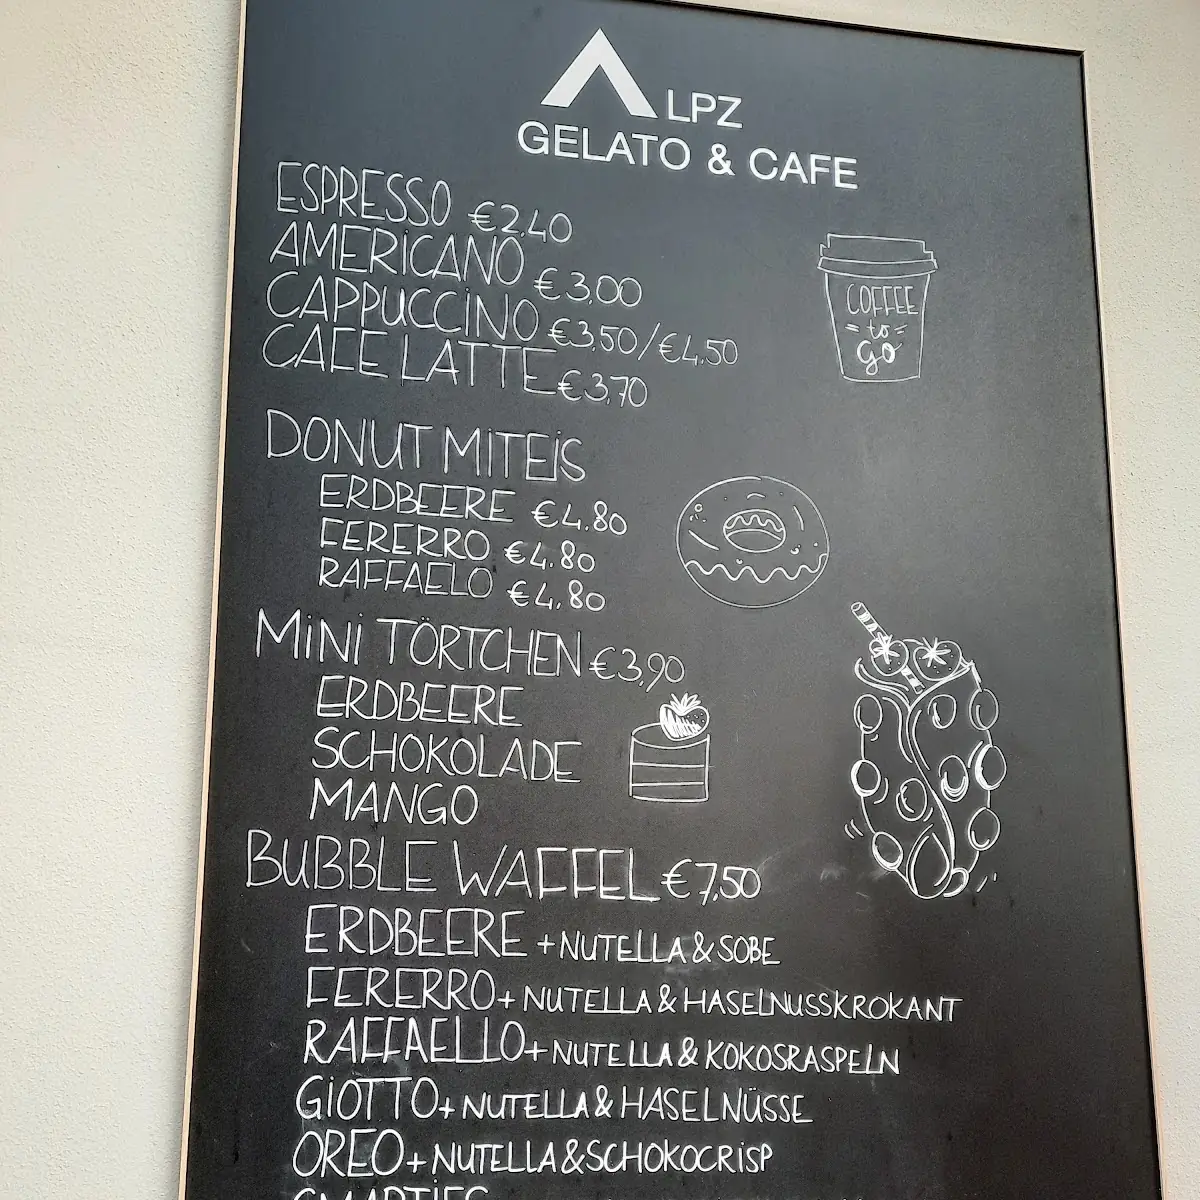 ALPZ
GELATO & CAFE
ESPRESSO €2.40
AMERICANO €3.00
CAPPUCCINO €3.50/€4.50
CAFE LATTE €3.70
COFFEE
to
go
DONUT MIT EIS
ERDBEERE €4.80
FERERRO €4.80
RAFFAELO €4.80
MINI TÖRTCHEN €3,90
ERDBEERE
SCHOKOLADE
MANGO
BUBBLE WAFFEL €7,50
ERDBEERE + NUTELLA & SOBE
FERERRO + NUTELLA & HASELNUSSKROKANT
RAFFAELLO + NUTELLA & KOKOSRASPELN
GIOTTO + NUTELLA & HASELNÜSSE
OREO + NUTELLA & SCHOKOCRISP
SMARTIES